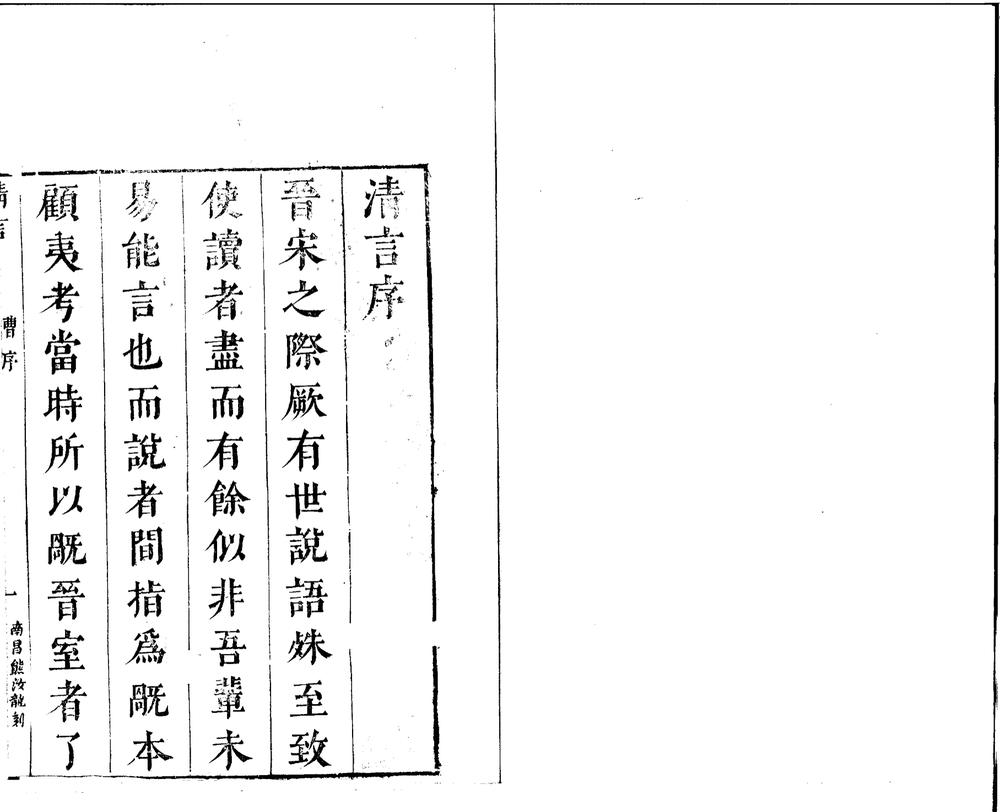 清言序
晉宋之際厥有世說語姝至致
使讀者盡而有餘似非吾輩未
易能言也而說者間指爲旤本
顧夷考當時所以旤晉室者了
清言
曹序
一
南昌熊汝龍刻